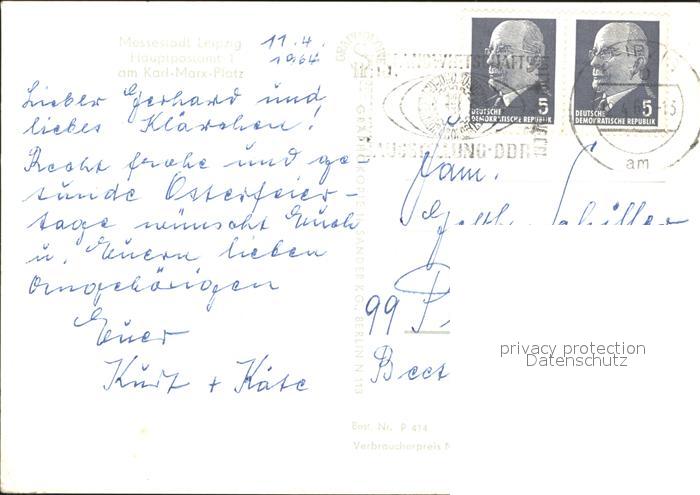 Messestadt Leipzig
Hauptpostamt 1
am Karl-Marx-Platz
11.4.
1964
Lieber Gerhard und
liebes Klärchen!
Recht frohe und ge
sunde Osterfeier-
tage wünscht Euch
u. Euern lieben
Angehörigen
Euer
Kurt + Käte
LANDWIRTSCHAFTS
AUSSTELLUNG·DDR
DEUTSCHE
DEMOKRATISCHE REPUBLIK
5
DEUTSCHE
DEMOKRATISCHE REPUBLIK
5
am
Fam.
Schiller
99 P
Beet
BERLIN N 113
Best. Nr. P 414
Verbraucherpreis
privacy protection
Datenschutz